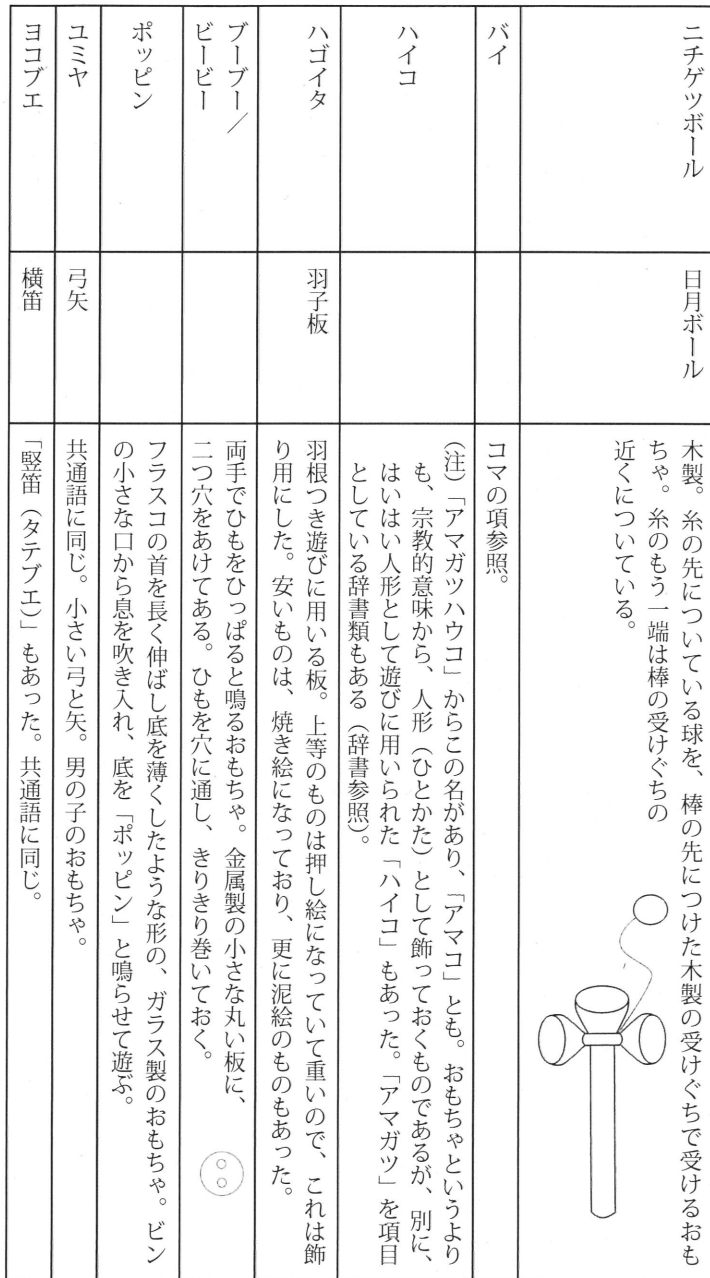 ニチゲツボール
日月ボール
木製。糸の先についている球を、棒の先につけた木製の受けぐちで受けるおも
ちゃ。糸のもう一端は棒の受けぐちの
近くについている。
バイ
コマの項参照。
ハイコ
(注)「アマガツハウコ」からこの名があり、「アマコ」とも。おもちゃというより
も、宗教的意味から、人形(ひとかた)として飾っておくものであるが、別に、
はいはい人形として遊びに用いられた「ハイコ」もあった。「アマガツ」を項目
としている辞書類もある(辞書参照)。
ハゴイタ
羽子板
羽根つき遊びに用いる板。上等のものは押し絵になっていて重いので、これは飾
り用にした。安いものは、焼き絵になっており、更に泥絵のものもあった。
ブーブー/
ビービー
両手でひもをひっぱると鳴るおもちゃ。金属製の小さな丸い板に、
二つ穴をあけてある。ひもを穴に通し、きりきり巻いておく。
ポッピン
フラスコの首を長く伸ばし底を薄くしたような形の、ガラス製のおもちゃ。ビン
の小さな口から息を吹き入れ、底を「ポッピン」と鳴らせて遊ぶ。
ユミヤ
弓矢
共通語に同じ。小さい弓と矢。男の子のおもちゃ。
ヨコブエ
横笛
「竪笛(タテブエ)」もあった。共通語に同じ。